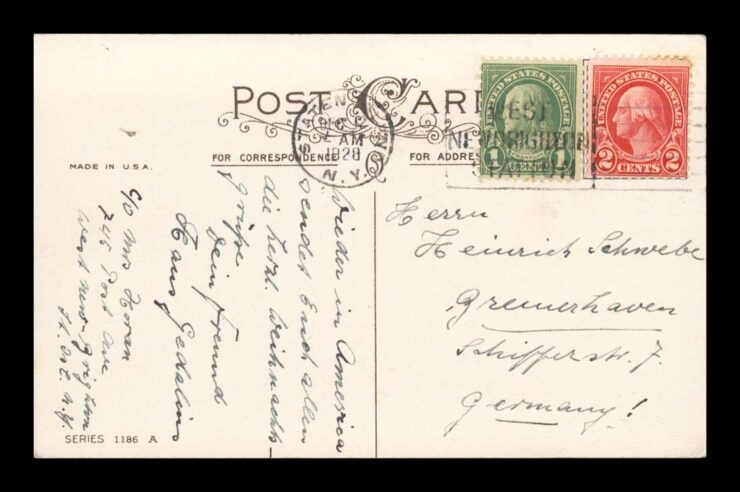 POST CARD
FOR CORRESPONDENCE
FOR ADDRESS
MADE IN U.S.A.
STATEN
DEC
AM
1928
N.Y.
UNITED STATES POSTAGE
1 CENT 1
UNITED STATES POSTAGE
2 CENTS 2
WEST
NEW BRIGHTON
STATION
Wieder in America
sendet Euch allen
die herzl. Weihnachts-
grüße
Dein Freund
Hans
C/o Mrs Horan
745 Post Ave
West New-Brighton
St. Isl. N.Y.
Herrn
Heinrich Schwebe
Bremerhaven
Schifferstr. 7.
Germany!
SERIES 1186 A